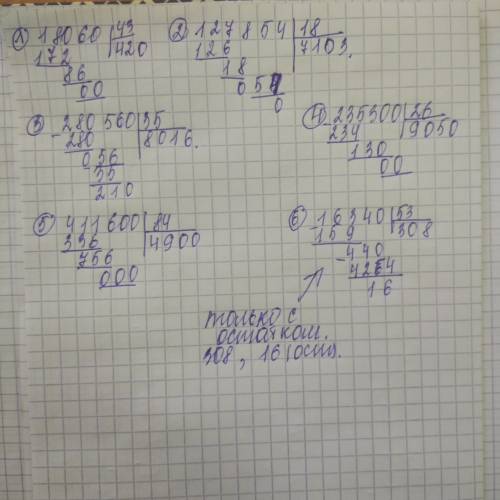 1) 18060 | 43
172 | 420
86
00
2) 127854 | 18
126 | 7103.
18
054
0
3) - 280560 | 35
280 | 8016.
056
35
210
4) - 235300 | 26
234 | 9050
130
00
5) 411600 | 84
336 | 4900
756
000
6) - 16340 | 53
159 | 308
- 440
424
16
только с
остатком.
308, 16 (ост).